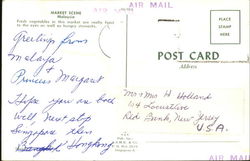 AIR MAIL
AIR MAIL
MARKET SCENE
Malaysia
Fresh vegetables at this market are really feast
to the eyes as well as hungry stomachs.
Greetings from
Malaya +
Princess Margaret
Hope you are both
Well, next stop
Singapore then
Bangkok Hongkong
POST CARD
Address
Mr & Mrs H Holland
Red Bank, New Jersey
U.S.A.
AIR MAIL